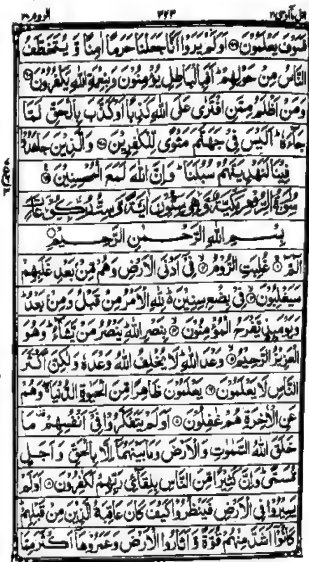 اتل مآاوحی ۲۱ ۳۶۳ الروم ۳۰
فَسَوْفَ يَعْلَمُونَ ۝ اَوَلَمْ يَرَوْا اَنَّا جَعَلْنَا حَرَمًا اٰمِنًا وَّ يُتَخَطَّفُ
النَّاسُ مِنْ حَوْلِهِمْ ؕ اَفَبِالْبَاطِلِ يُؤْمِنُوْنَ وَبِنِعْمَةِ اللّٰهِ يَكْفُرُوْنَ ۝
وَمَنْ اَظْلَمُ مِمَّنِ افْتَرٰى عَلَى اللّٰهِ كَذِبًا اَوْ كَذَّبَ بِالْحَقِّ لَمَّا
جَآءَهٗ ؕ اَلَيْسَ فِيْ جَهَنَّمَ مَثْوًى لِّلْكٰفِرِيْنَ ۝ وَالَّذِيْنَ جَاهَدُوْا
فِيْنَا لَنَهْدِيَنَّهُمْ سُبُلَنَا ؕ وَاِنَّ اللّٰهَ لَمَعَ الْمُحْسِنِيْنَ ۝
سُوْرَةُ الرُّوْمِ مَكِّيَّةٌ وَّهِيَ سِتُّوْنَ اٰيَةً وَّسِتُّ رُكُوْعَاتٍ
بِسْمِ اللّٰهِ الرَّحْمٰنِ الرَّحِيْمِ
الٓمّٓ ۝ غُلِبَتِ الرُّوْمُ ۝ فِيْٓ اَدْنَى الْاَرْضِ وَهُمْ مِّنْۢ بَعْدِ غَلَبِهِمْ
سَيَغْلِبُوْنَ ۝ فِيْ بِضْعِ سِنِيْنَ ؕ لِلّٰهِ الْاَمْرُ مِنْ قَبْلُ وَمِنْۢ بَعْدُ ؕ
وَيَوْمَئِذٍ يَّفْرَحُ الْمُؤْمِنُوْنَ ۝ بِنَصْرِ اللّٰهِ ؕ يَنْصُرُ مَنْ يَّشَآءُ ؕ وَهُوَ
الْعَزِيْزُ الرَّحِيْمُ ۝ وَعْدَ اللّٰهِ ؕ لَا يُخْلِفُ اللّٰهُ وَعْدَهٗ وَلٰكِنَّ اَكْثَرَ
النَّاسِ لَا يَعْلَمُوْنَ ۝ يَعْلَمُوْنَ ظَاهِرًا مِّنَ الْحَيٰوةِ الدُّنْيَا ۖ وَهُمْ
عَنِ الْاٰخِرَةِ هُمْ غٰفِلُوْنَ ۝ اَوَلَمْ يَتَفَكَّرُوْا فِيْٓ اَنْفُسِهِمْ ۟ مَا
خَلَقَ اللّٰهُ السَّمٰوٰتِ وَالْاَرْضَ وَمَا بَيْنَهُمَآ اِلَّا بِالْحَقِّ وَاَجَلٍ
مُّسَمًّى ؕ وَاِنَّ كَثِيْرًا مِّنَ النَّاسِ بِلِقَآئِ رَبِّهِمْ لَكٰفِرُوْنَ ۝ اَوَلَمْ
يَسِيْرُوْا فِي الْاَرْضِ فَيَنْظُرُوْا كَيْفَ كَانَ عَاقِبَةُ الَّذِيْنَ مِنْ قَبْلِهِمْ ؕ
كَانُوْٓا اَشَدَّ مِنْهُمْ قُوَّةً وَّ اَثَارُوا الْاَرْضَ وَعَمَرُوْهَآ اَكْثَرَ مِمَّا